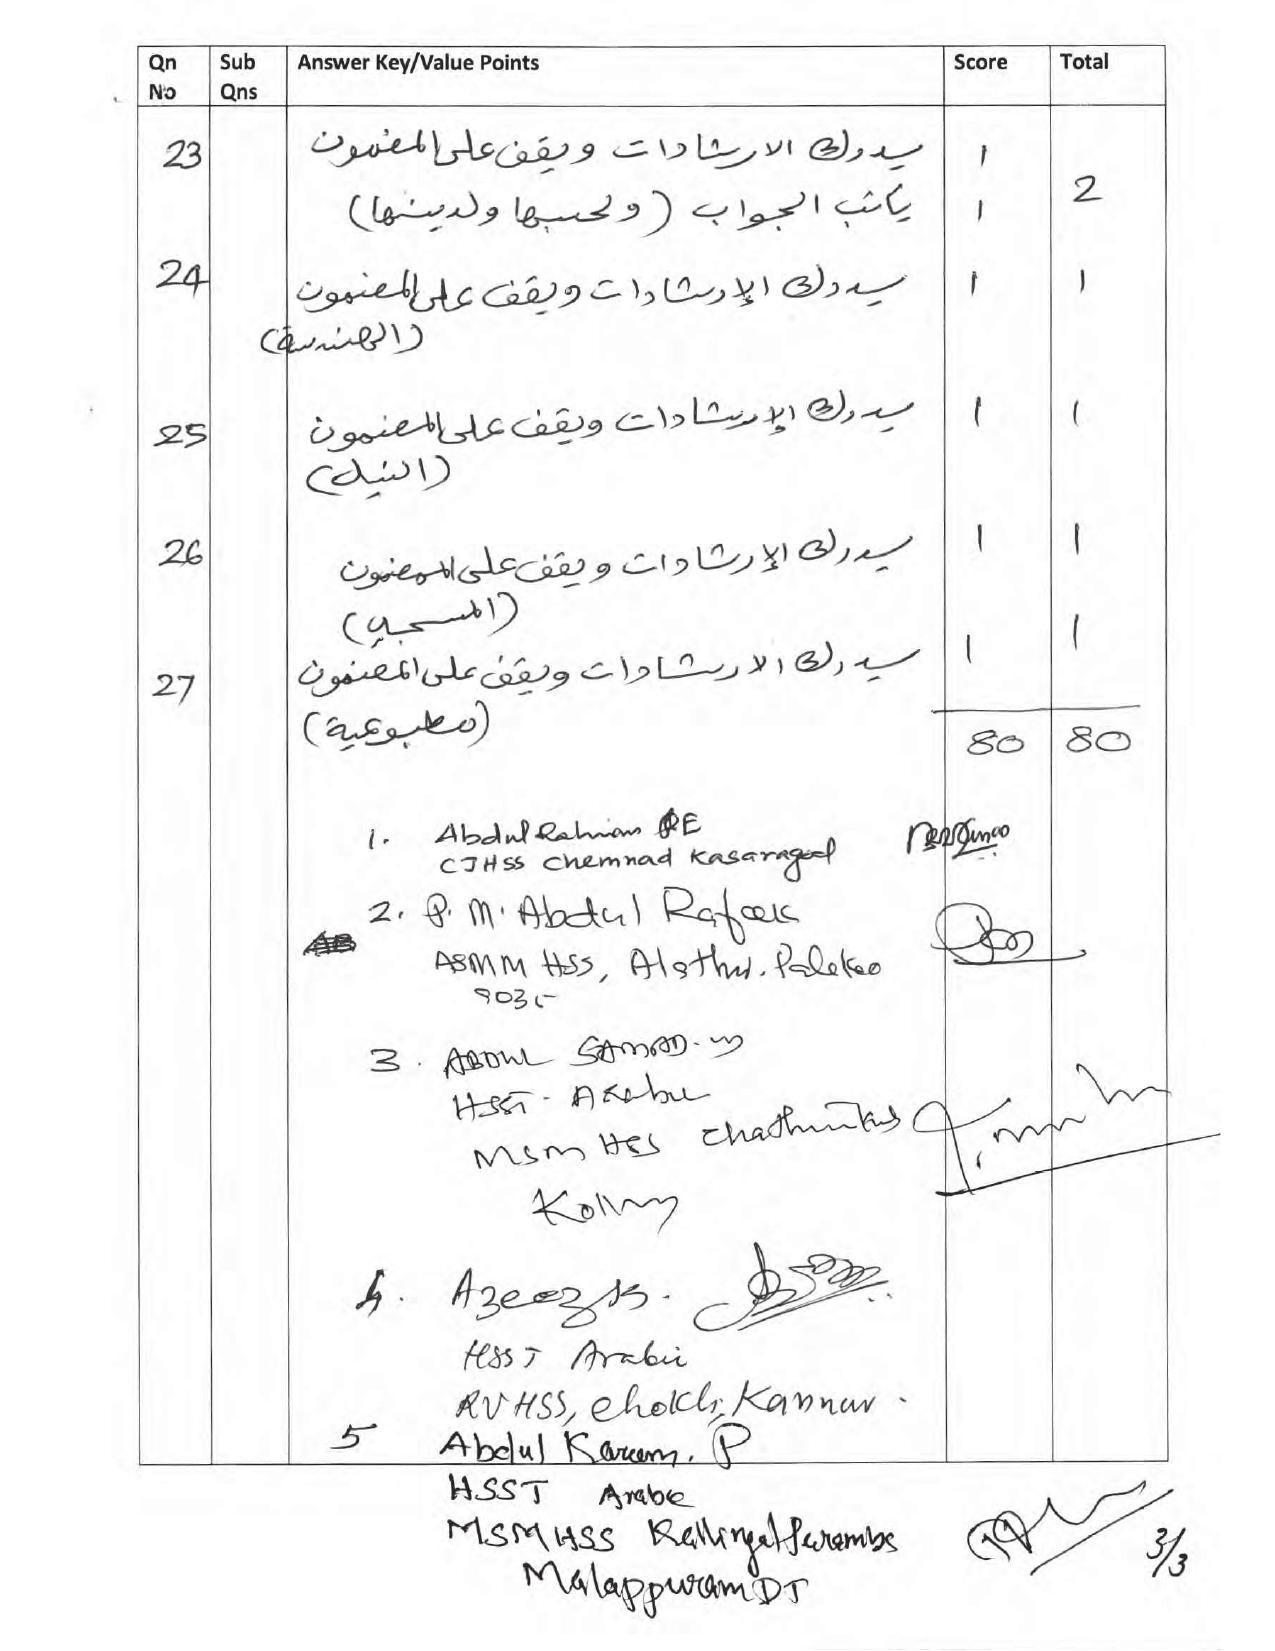 Qn No Sub Qns Answer Key/Value Points Score Total
23 سيدرك الارشادات ويقف على المضمون 1
يكتب الجواب (ولحبها ولدينها) 1 2
24 سيدرك الإرشادات ويقف على المضمون 1 1
(الهندسة)
25 سيدرك الإرشادات ويقف على المضمون 1 1
(النيل)
26 سيدرك الإرشادات ويقف على المضمون 1 1
(المسجد)
27 سيدرك الارشادات ويقف على المضمون 1 1
(مطبوعية)
80 80
1. Abdul Rahman PE
CJHSS Chemnad Kasaragod
2. P. M. Abdul Rafeek
ASMM HSS, Alathur. Palakkad
9035
3. ABDUL SAMAD.
HSST - Arabic
MSM HSS
Kollam
4. Azeez K.
HSST Arabic
RVHSS, Chokli, Kannur.
5 Abdul Kareem. P
HSST Arabic
MSMHSS Kallingalparamba
Malappuram DT
3/3